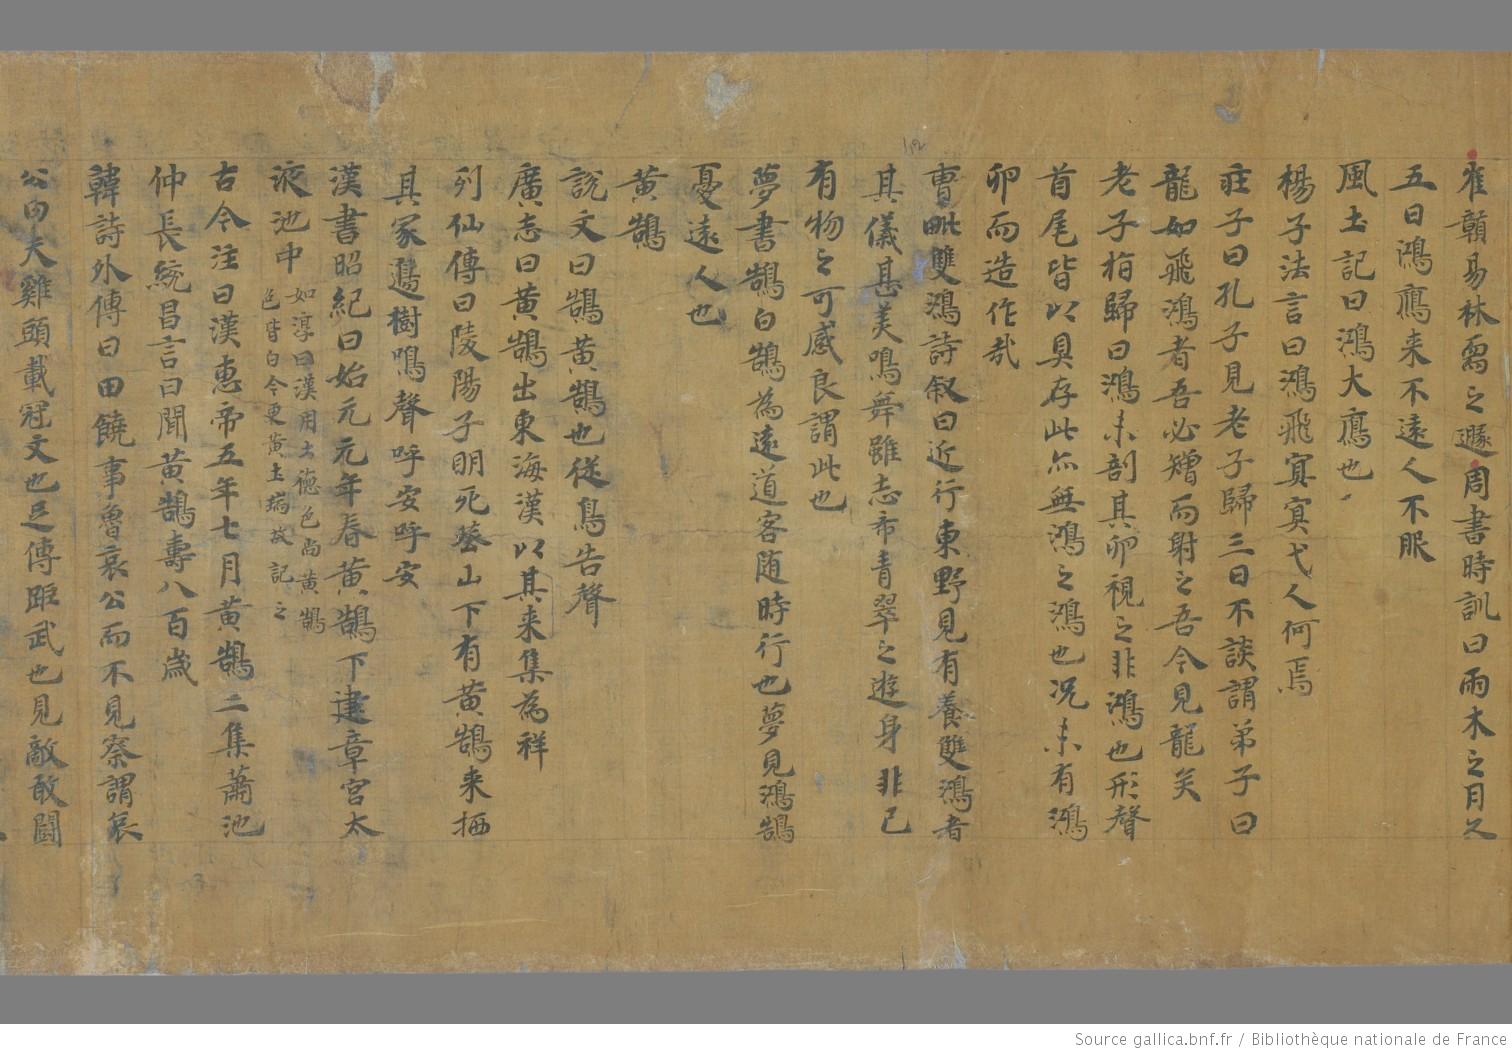 崔贛易林需之遯周書時訓曰雨水之日又
五日鴻鴈来不遠人不服
風土記曰鴻大鴈也
楊子法言曰鴻飛㝠㝠弋人何焉
莊子曰孔子見老子歸三日不談謂弟子曰
龍如飛鴻者吾必矰而射之吾今見龍矣
老子指歸曰鴻未剖其卵視之非鴻也形聲
首尾皆以具存此尓無鴻之鴻也况未有鴻
卵而造作哉
曹毗雙鴻詩叙曰近行東野見有養雙鴻者
其儀甚美鳴舞雖志希青翠之遊身非己
有物之可感良謂此也
夢書鵠白鵠為遠道客随時行也夢見鴻鵠
憂遠人也
黄鵠
說文曰鵠黄鵠也従鳥告聲
廣志曰黄鵠出東海漢以其来集為祥
列仙傳曰陵陽子明死葬山下有黄鵠来栖
其冢邊樹鳴聲呼安呼安
漢書昭紀曰始元元年春黄鵠下建章宮太
液池中如淳曰漢用土德色尚黄鵠色皆白今更黄土瑞故記之
古今注曰漢惠帝五年七月黄鵠二集蕭池
仲長統昌言曰聞黄鵠壽八百歳
韓詩外傳曰田饒事魯哀公而不見察謂哀
公曰夫雞頭戴冠文也足傳距武也見敵敢鬪
Source gallica.bnf.fr / Bibliothèque nationale de France